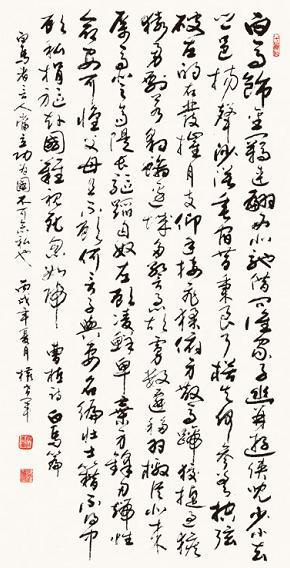 白馬飾金羈連翩西北馳借問誰家子幽并遊俠兒少小去
鄉邑揚聲沙漠垂宿昔秉良弓楛矢何參差控弦
破左的右發摧月支仰手接飛猱俯身散馬蹄狡捷過猴
猿勇剽若豹螭邊城多警急胡虜數遷移羽檄從北來
厲馬登高堤長驅蹈匈奴左顧凌鮮卑棄身鋒刃端性
命安可懷父母且不顧何言子與妻名編壯士籍不得中
顧私捐軀赴國難視死忽如歸 曹植詩白馬篇
白馬者言人當立功為國不可念私也 丙戌年夏月